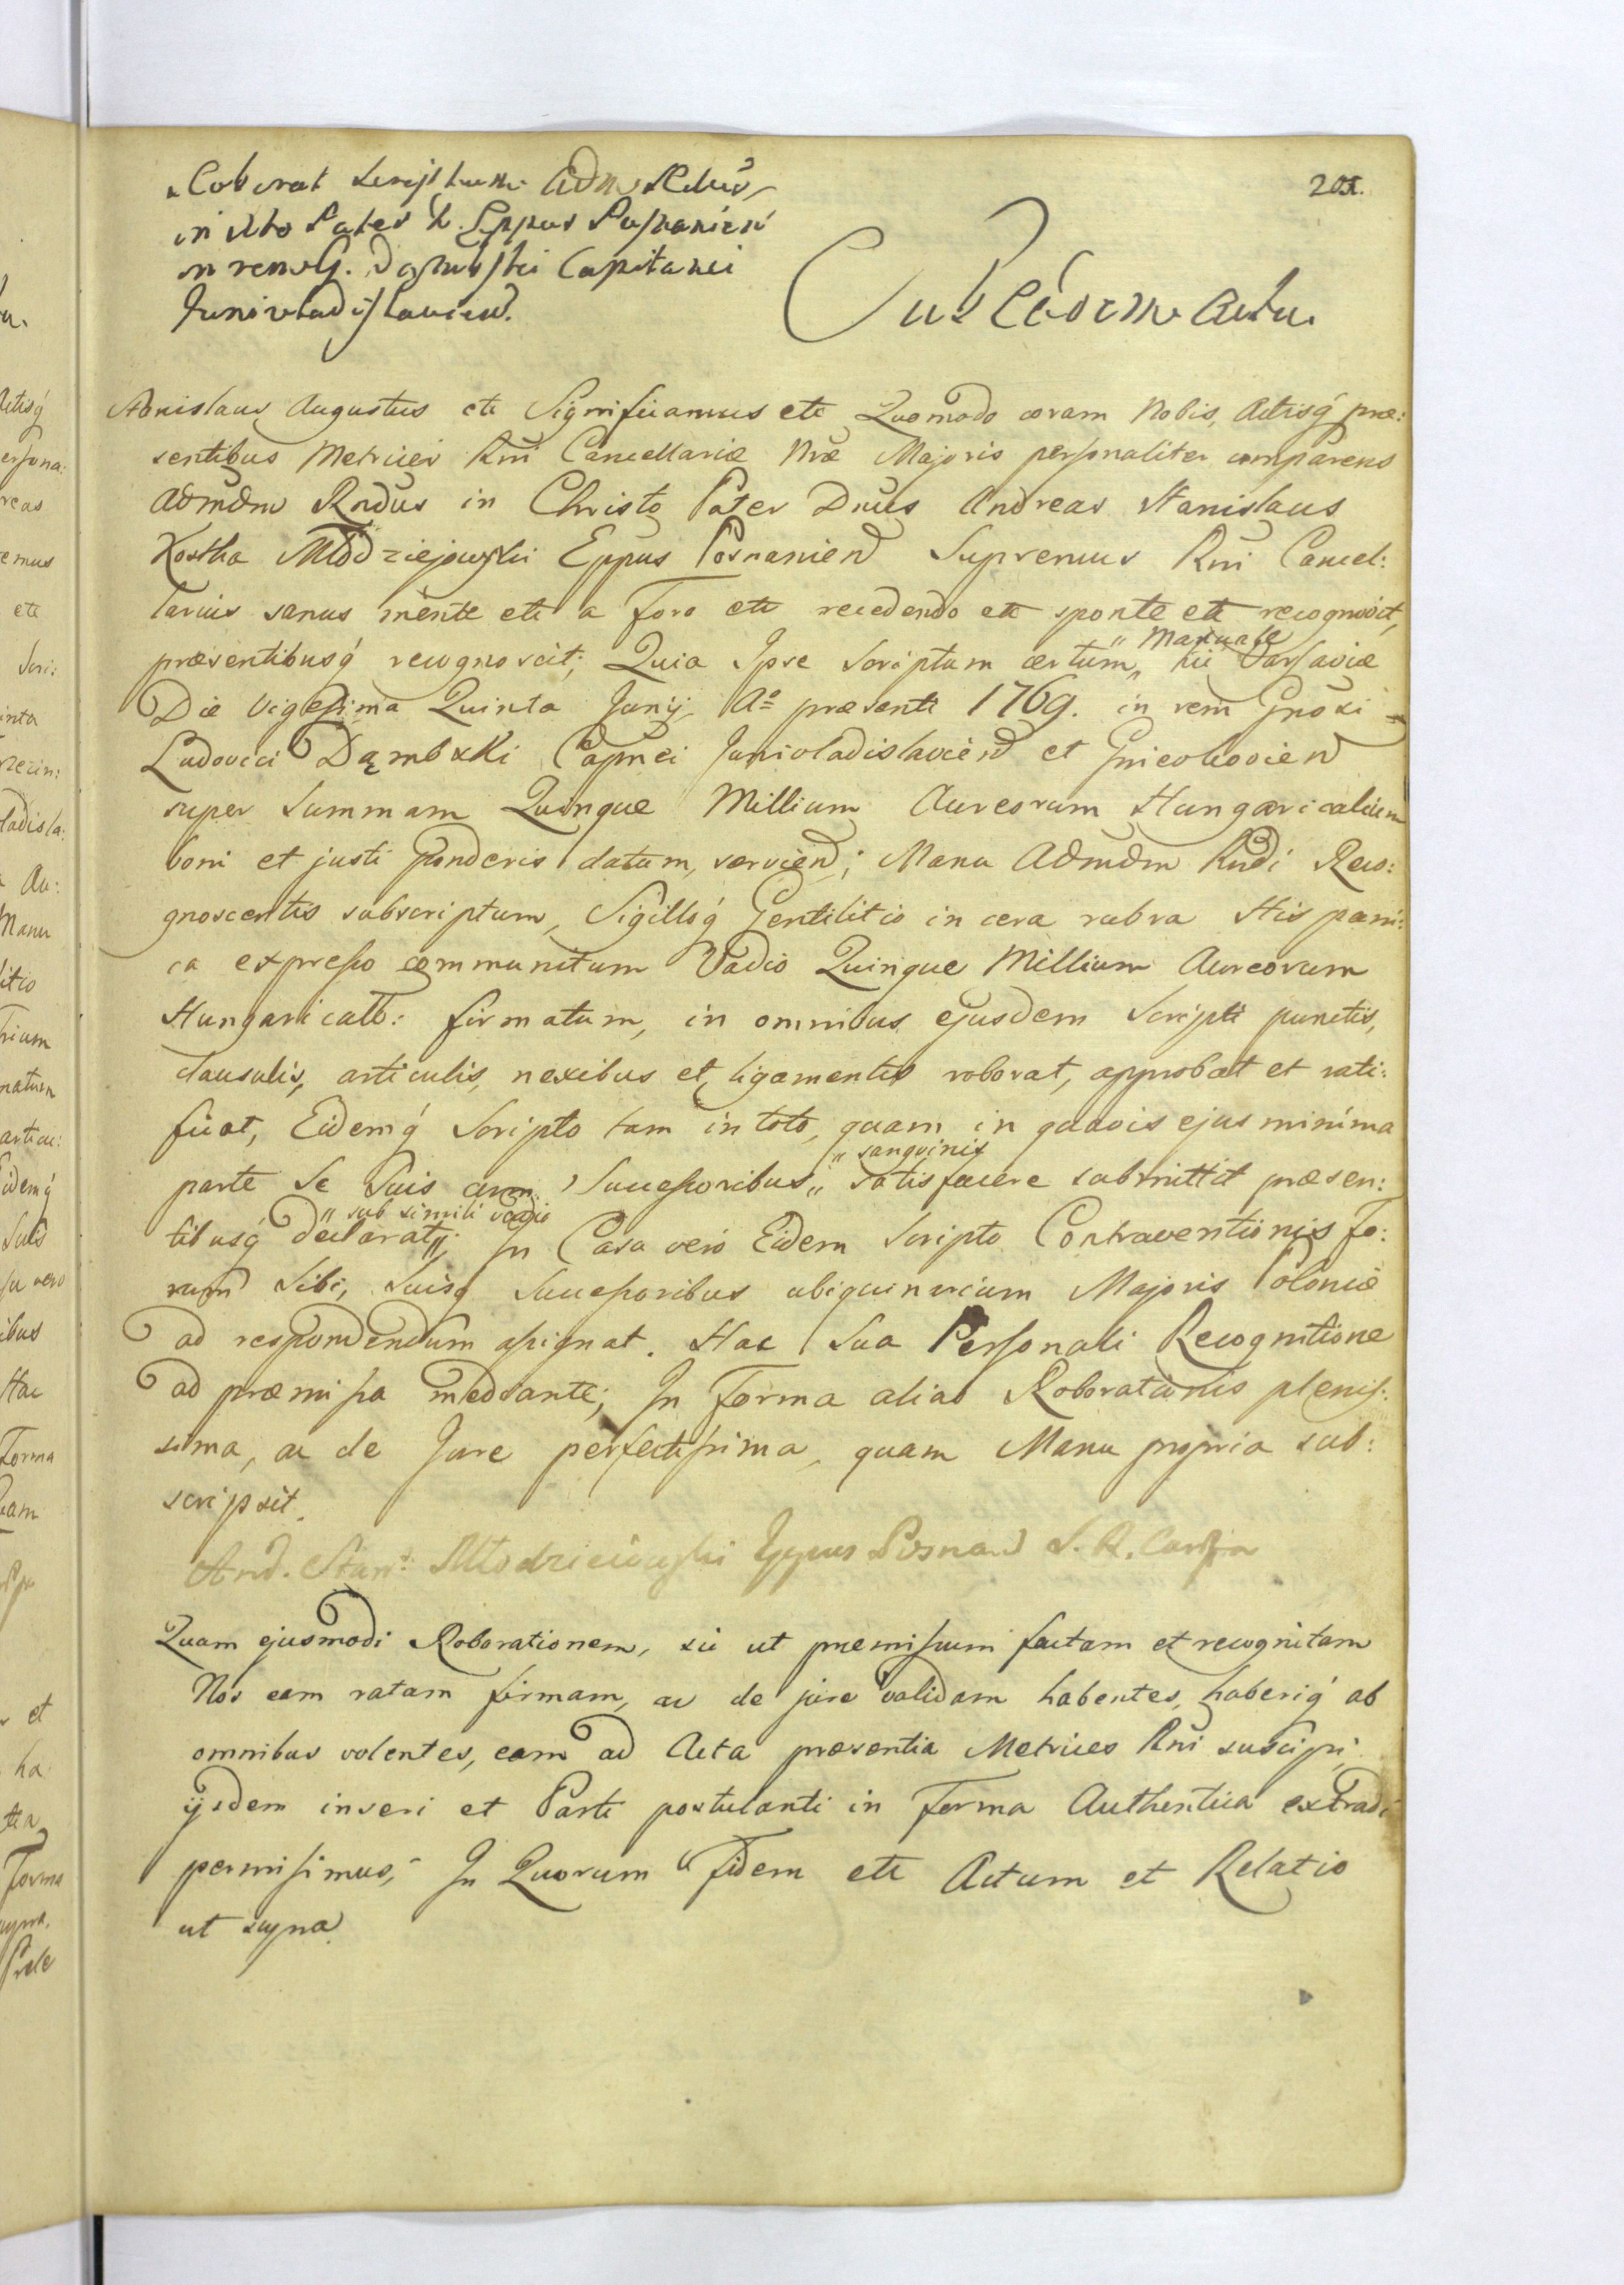 201.
Roborat Scriptum Adm Rndus
in Xto Pater D. Eppus Posnanien
in rem G. Dąmbski Capitanei
Junivladislavien.
Sub Eodem Actu.
Stanislaus Augustus etc Significamus etc Quomodo coram Nobis, Actisq́ præ:
sentibus Metrices Rni Cancellariæ Nræ Majoris personaliter comparens
Admdm Rndus in Christo Pater Dnus Andreas Stanislaus
Kostka Młodziejowski Eppus Posnanien Supremus Rni Cancel:
larius sanus mente etc a Foro etc recedendo etc sponte etc recognovit,
præsentibusq́ recognoscit; Quia Ipse Scriptum certum „ Manuale hic Varsaviæ
Die Vigesima Quinta Junij Aº præsenti 1769. in rem Gnosi
Ludovici Dąmbski Capnei Junivladislavien et Gniewkovien
super Summam Quinque Millium Aureorum Hungaricalium
boni et justi ponderis datum, servien; Manu Admdm Rndi Reco:
gnoscentis subscriptum, Sigilloq́ Gentilitio in cera rubra Hispani:
ca expresso communitum Vadio Quinque Millium Aureorum
Hungaricall: firmatum, in omnibus ejusdem Scripti punctis,
clausulis, articulis, nexibus et ligamentis roborat, approbat et rati:
ficat, Eidemq́ Scripto tam in toto, quam in quavis ejus minima
parte Se Suis cum Successoribus „ sanguinis satisfacere submittit præsen:
tibusq́ declarat „ sub simili vadio; In Casu vero Eidem Scripto Contraventionis fo:
rum Sibi, Suisq́ Successoribus ubiquinarium Majoris Poloniæ
ad respondendum assignat. Hac Sua Personali Recognitione
ad præmissa mediante; In Forma alias Roborationis plenis:
sima, ac de Jure perfectissima, quam Manu propria sub:
scripsit.
And. Stan: Młodzieiowski Eppus Posnan S. R. Canc
Quam ejusmodi Roborationem, sic ut præmissum factam et recognitam
Nos eam ratam firmam, ac de jure validam habentes, haberiq́ ab
omnibus volentes, eam ad Acta præsentia Metrices Rni suscipi,
ijsdem inseri et Parti postulanti in Forma Authentica extradi
permisimus; In Quorum Fidem etc Actum et Relatio
ut supra